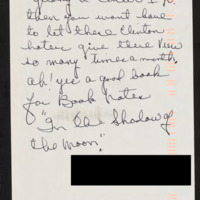 then you wont have
to let these Clinton
haters give there view
so many times a month.
ah! yes a good book
for Book Notes
"In the Shadow of
the Moon."